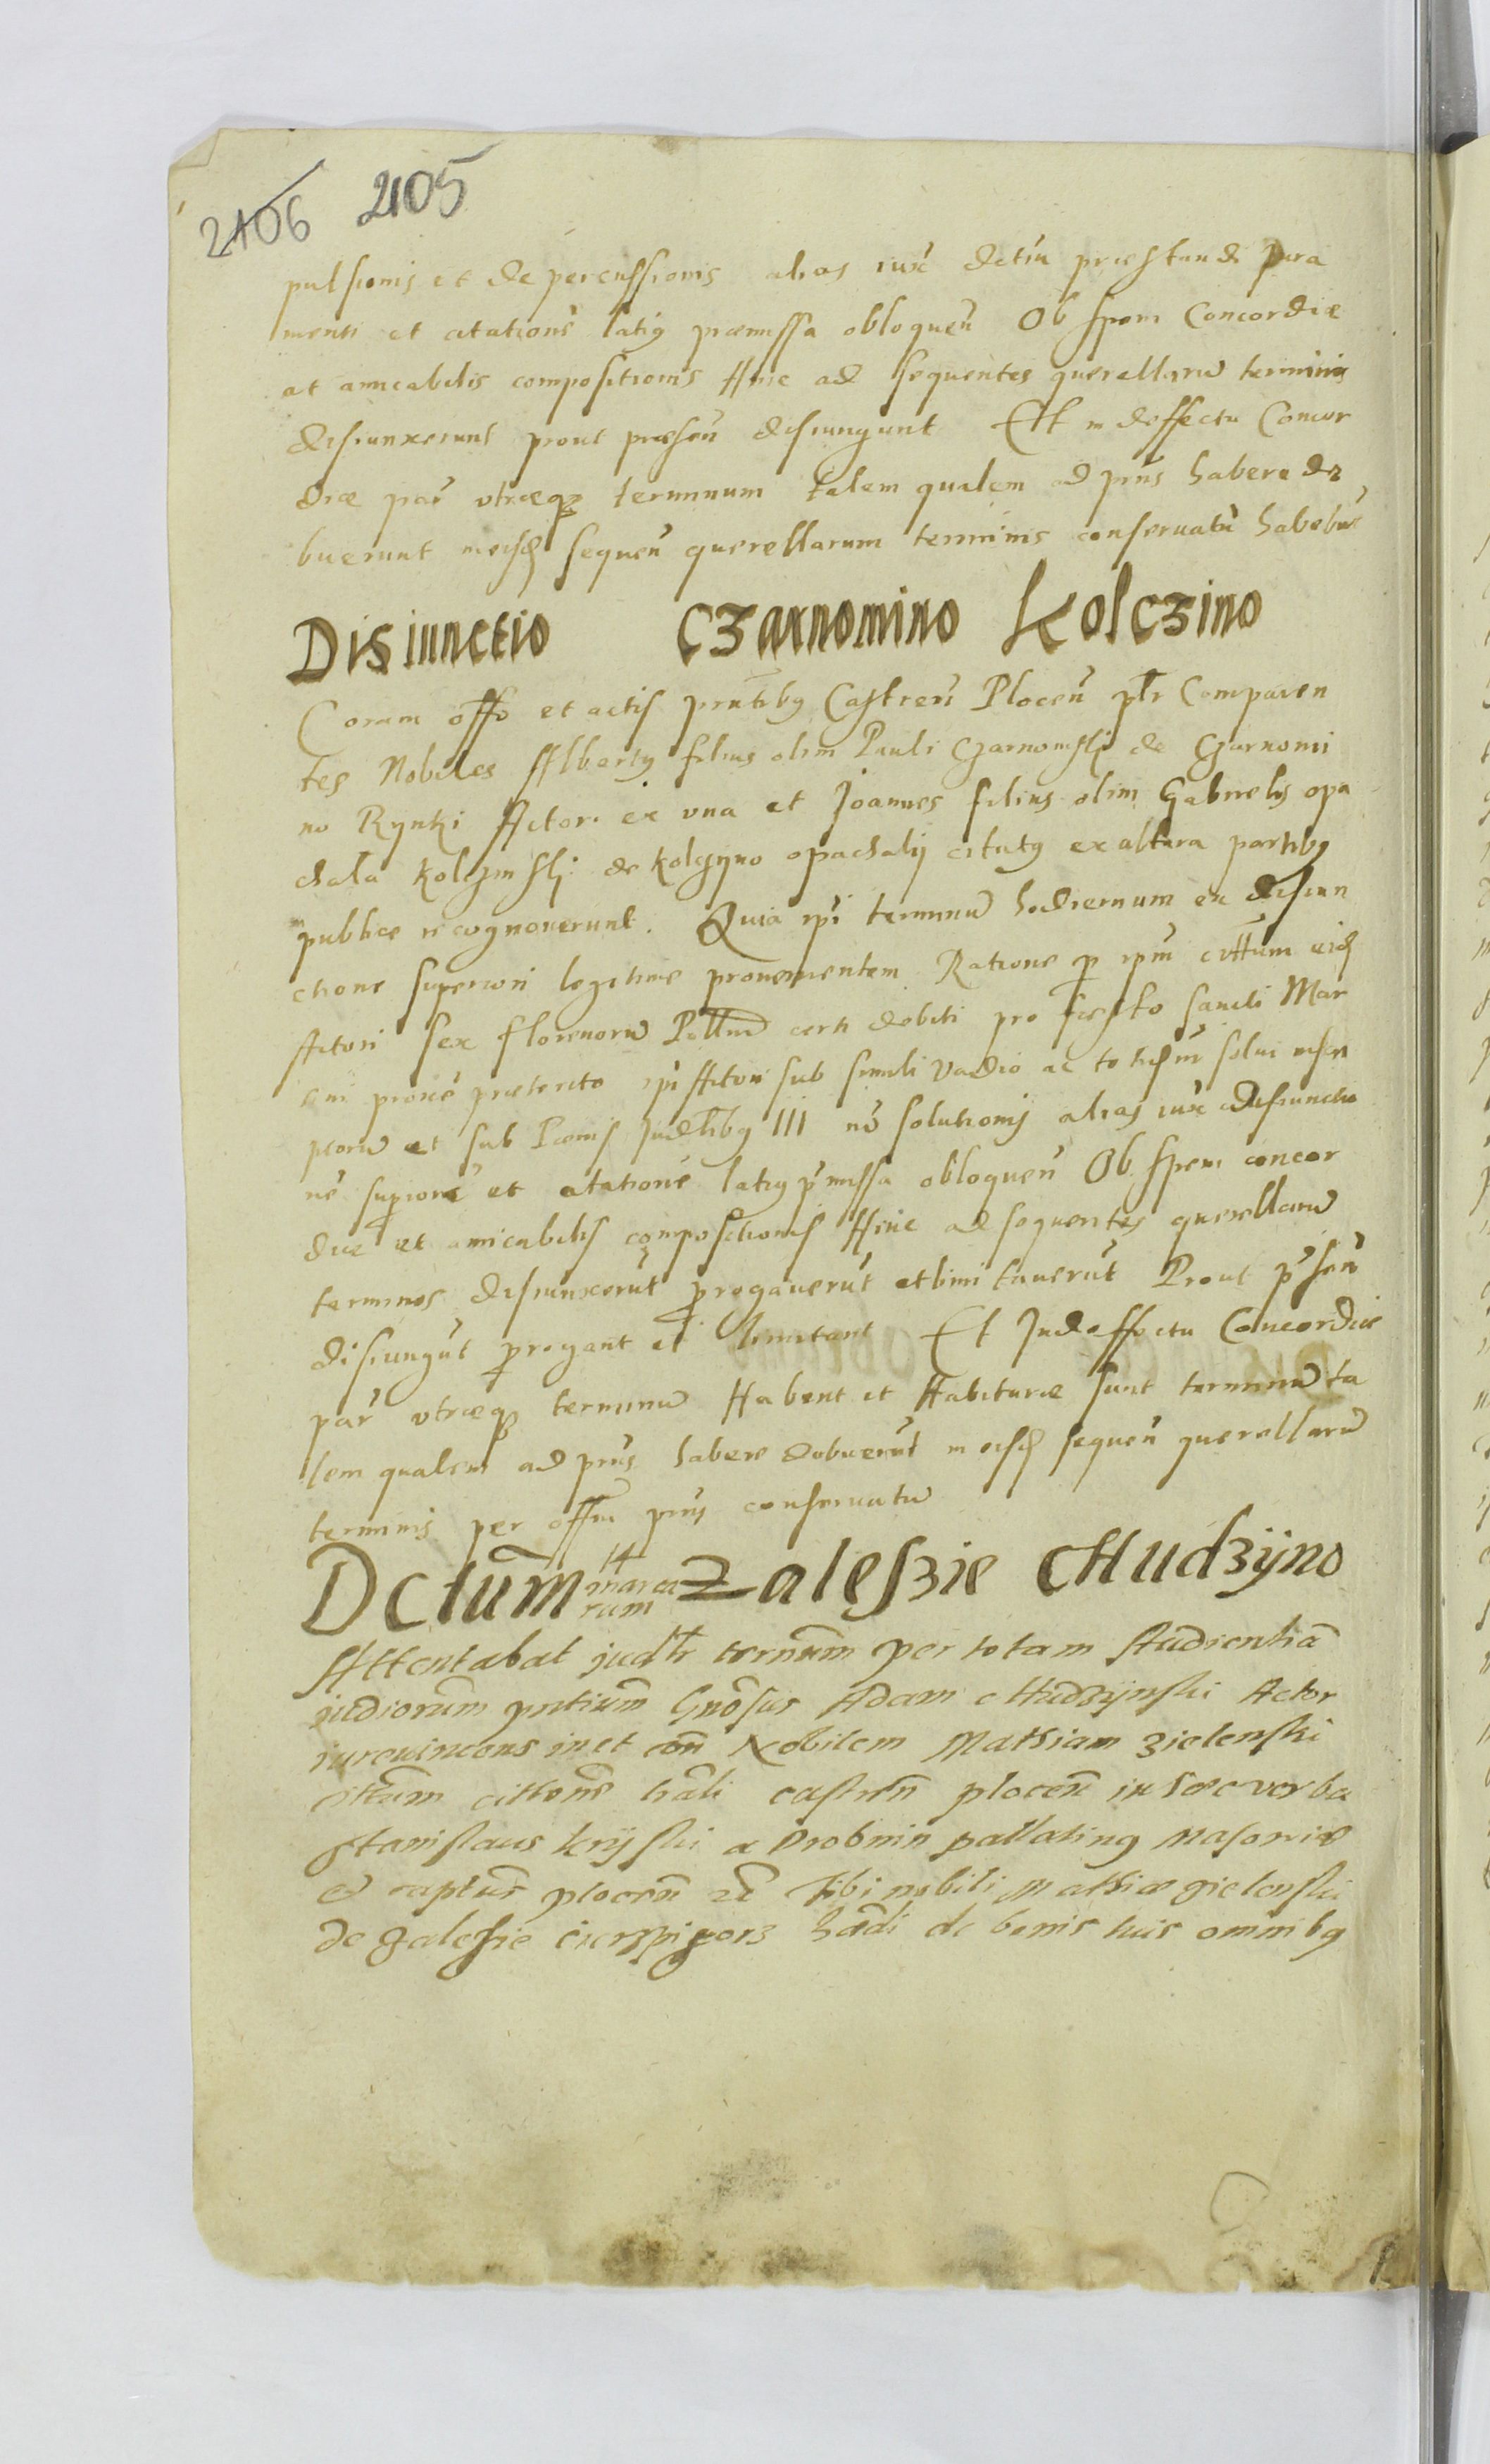 2106 2105
pulsionis et de percussionis alias iux dctũ præstandi Jura
menti et citationẽ latiꝯ præmissa obloqueñ Ob spem Concordiæ
at amicabilis compositionis Hinc ad sequentes querellarũ terminos
disiunxerunt prout præseñ disiungunt Et in deffectu Concor
diæ par̃ vtræqꝫ terminum talem qualem ad prius habere de
buerunt in eisdẽ sequeñ querellarum terminis conseruatũ habebũt
Disiunctio Czarnomino Kolczino
Coram offo et actis prntibꝯ Castreñ Ploceñ pltr Comparen
tes Nobiles Albertꝯ filius olim Pauli Czarnomski de Czarnomi
no Rynki Actor ex vna et Joannes filius olim Gabrielis opa
chala Kolczinski de Kolczyno opachaly citatꝯ ex altera partibꝯ
publice recognouerunt. Quia ipi terminũ hodiernum ex disiun
ctione superiori legitime prouenientem Ratione p ipm cittum eidẽ
Actori sex florenorũ Pollium certi debiti pro festo sancti Mar
tini proxe præterito ipi Actori sub simili vadio ac totiesm solui inscri
ptorũ et sub Pœnis Judlibꝯ III nõ solutionis alias iux disiunctio
nẽ supiorẽ et citationẽ latiꝯ pmissa obloqueñ Ob spem concor
diæ et amicabilis compositionis Hinc ad sequentes querellarũ
terminos disiunxerũt progauerũt et limitauerũt Prout pseñ
disiungũt progant et limitant Et In deffectu Concordiæ
par̃ vtræqꝫ terminũ Habent et Habituræ sunt terminũ ta
lem qualem ad prius habere debuerũt in eisdẽ sequeñ querellarũ
terminis per offm prius conseruatũ
Dctũm 14 marca rum Zaleszie Chudzÿno
Attentabat judlr ternũm per totam Audientiã
judiorũm pntium Gnõsus Adam Chudzÿnski Actor
iureuincens in et con Nobilem Mathiam Zielenski
cittum cittone trali castren plocen in hæc verba
Stanislaus Krÿski a Drobnin pallatinꝯ Masouiæ
et captus plocen zc Tibi nobili Mathiæ Zielenski
de Zalesie hædi de bonis tuis omnibꝯ